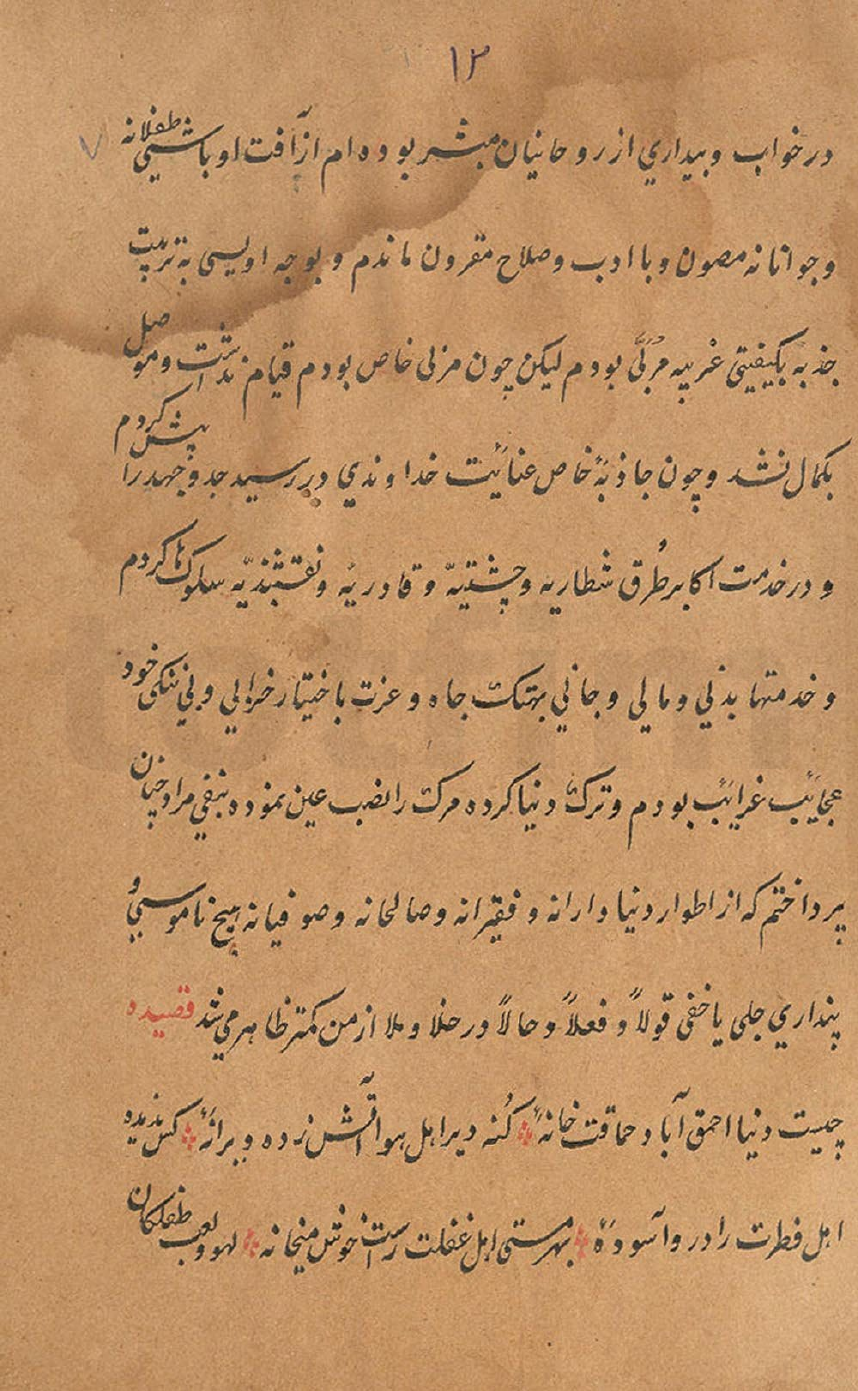 ۱۳
در خواب و بیداری از روحانیان مبشر بوده ام از آفت اوباشیی طفلانه
و جوانانه مصون و با ادب و صلاح مقرون ماندم و بوجه اویسی به تربیت
جذبه بکیفیتی غریبه مربّی بودم لیکن چون مزلی خاص بودم قیام نداشت و موصل
بکمال نشد و چون جاذبهٔ خاص عنایت خداوندی در رسید جد و جهد را پیش کردم
و در خدمت اکابر طُرق شطاریه و چشتیه و قادریه و نقشبندیه سلوک ها کردم
و خدمتها بدنی و مالی و جانی بهتک جاه و عزت باختیار خرابی و بی ننکی خود
عجایب غرایب بودم و ترک دنیا کرده مرک را نصب عین نموده بنفی مراد چنان
پرداختم که از اطوار دنیا دارانه و فقیرانه و صالحانه و صوفیانه هیچ ناموسیی و
پنداری جلی یا خفی قولاً و فعلاً و حالاً در خلا و ملا از من کمتر ظاهر می شد قصیده
چیست دنیا احمق آباد حماقت خانهٔ کُنه دیر اهل هوا آتش زده ویرانهٔ کس ندیده
اهل فطرت را درو آسودهٔ بهر مستی اهل غفلت راست خوش میخانه لهو و لعب طفلکان